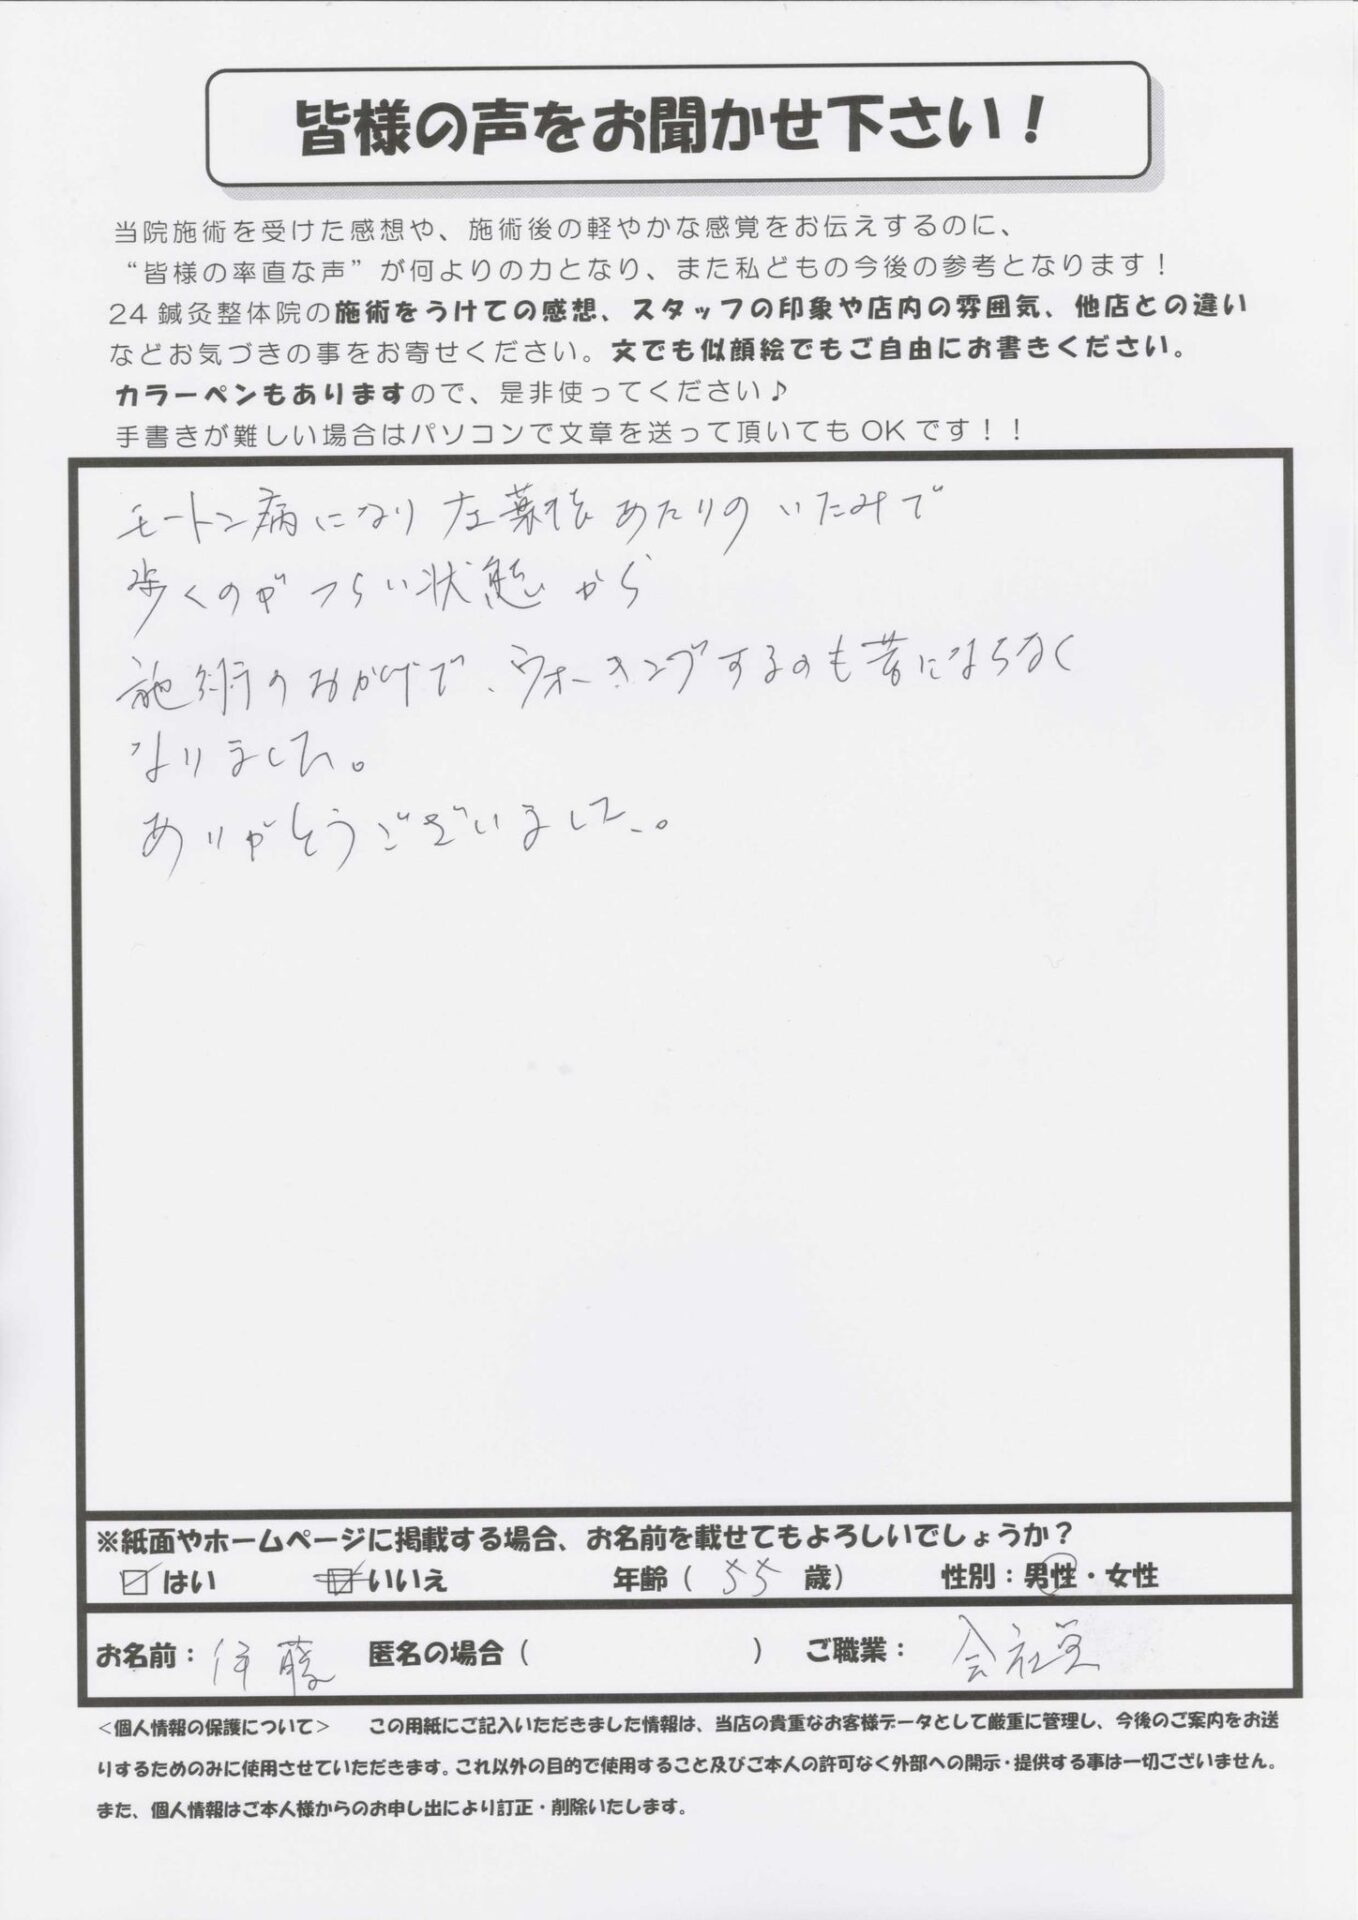 皆様の声をお聞かせ下さい！
当院施術を受けた感想や、施術後の軽やかな感覚をお伝えするのに、
“皆様の率直な声”が何よりの力となり、また私どもの今後の参考となります！
24鍼灸整体院の施術をうけての感想、スタッフの印象や店内の雰囲気、他店との違い
などお気づきの事をお寄せください。文でも似顔絵でもご自由にお書きください。
カラーペンもありますので、是非使ってください♪
手書きが難しい場合はパソコンで文章を送って頂いてもOKです！！
モートン病になり左薬指あたりのいたみで
歩くのがつらい状態から
施術のおかげで、ウォーキングするのも苦にならなく
なりました。
ありがとうございました。
※紙面やホームページに掲載する場合、お名前を載せてもよろしいでしょうか？
はい いいえ 年齢（55歳） 性別：男性・女性
お名前：伊藤 匿名の場合（ ） ご職業：会社員
＜個人情報の保護について＞ この用紙にご記入いただきました情報は、当店の貴重なお客様データとして厳重に管理し、今後のご案内をお送
りするためのみに使用させていただきます。これ以外の目的で使用すること及びご本人の許可なく外部への開示・提供する事は一切ございません。
また、個人情報はご本人様からのお申し出により訂正・削除いたします。